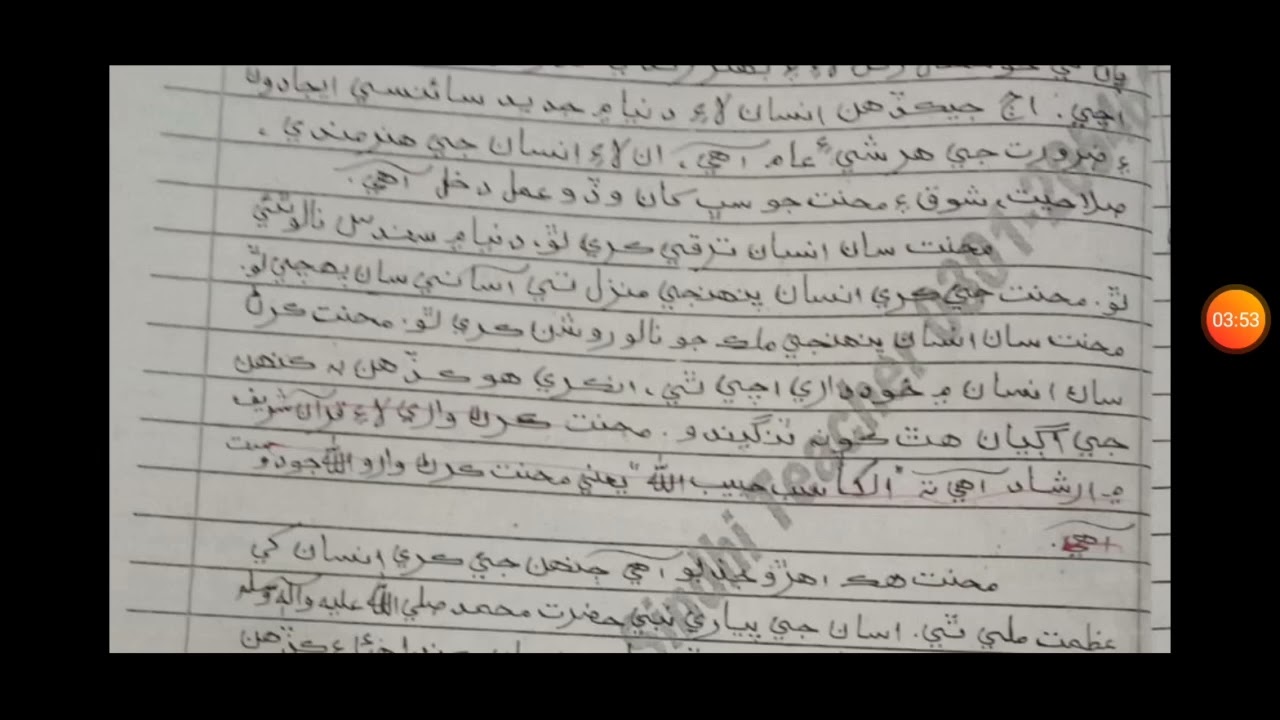 اچي. اڄ جيڪڏهن انسان لاءِ دنيا ۾ جديد سائنسي ايجادون
۽ ضرورت جي هر شيءِ عام آهي. ان لاءِ انسان جي هنرمندي،
صلاحيت، شوق ۽ محنت جو سڀ کان وڏو عمل دخل آهي.
محنت سان انسان ترقي ڪري ٿو، دنيا ۾ سندس نالو ٿئي
ٿو. محنت جي ڪري انسان پنهنجي منزل تي آساني سان پهچي ٿو.
محنت سان انسان پنهنجي ملڪ جو نالو روشن ڪري ٿو. محنت ڪرڻ
سان انسان ۾ خودداري اچي ٿي، انڪري هو ڪڏهن به ڪنهن
جي اڳيان هٿ ڪونه ٽنگيندو. محنت ڪرڻ واري لاءِ قرآن شريف
۾ ارشاد آهي ته "الڪاسب حبيب الله" يعني محنت ڪرڻ وارو الله جو دوست
آهي.
محنت هڪ اهڙو جذبو آهي جنهن جي ڪري انسان کي
عظمت ملي ٿي. اسان جي پياري نبي حضرت محمد صلي الله عليه وآله وسلم
Sindhi Teacher 0301-
03:53